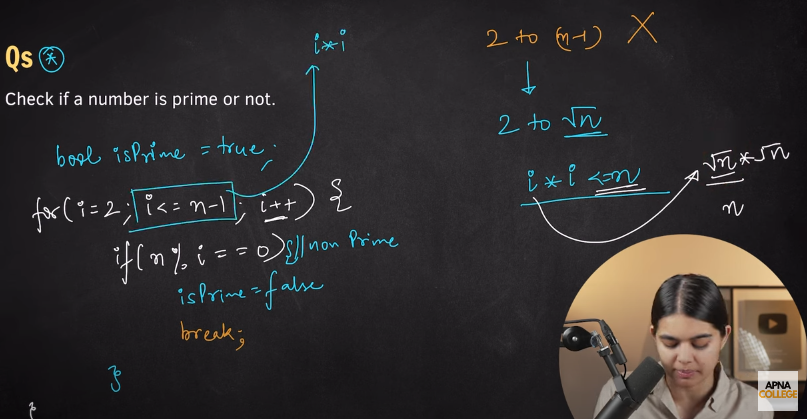 Qs *
Check if a number is prime or not.
bool isPrime = true;
i*i
for(i=2; i<= n-1; i++) {
if(n % i == 0){ // non Prime
isPrime = false
break;
}
2 to (n-1) X
2 to √n
i * i <= n
√n * √n
n
APNA
COLLEGE